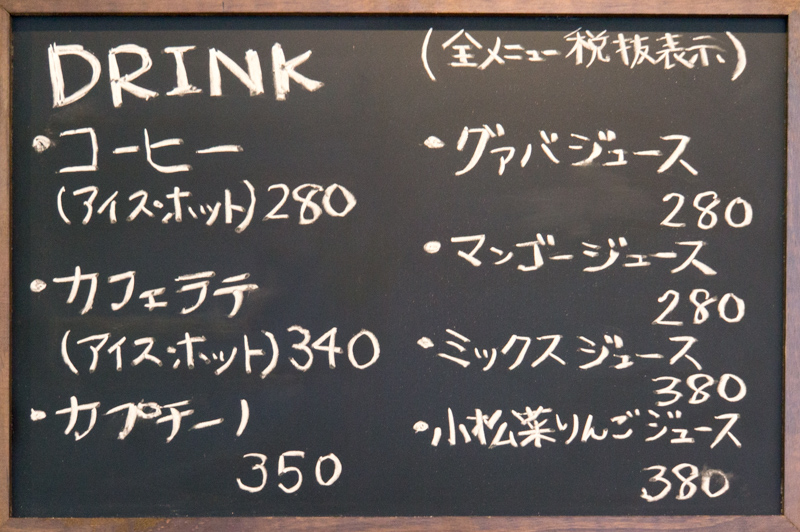 DRINK
・コーヒー
(アイス・ホット)280
・カフェラテ
(アイス・ホット)340
・カプチーノ
350
(全メニュー税抜表示)
・グァバジュース
280
・マンゴージュース
280
・ミックスジュース
380
・小松菜りんごジュース
380